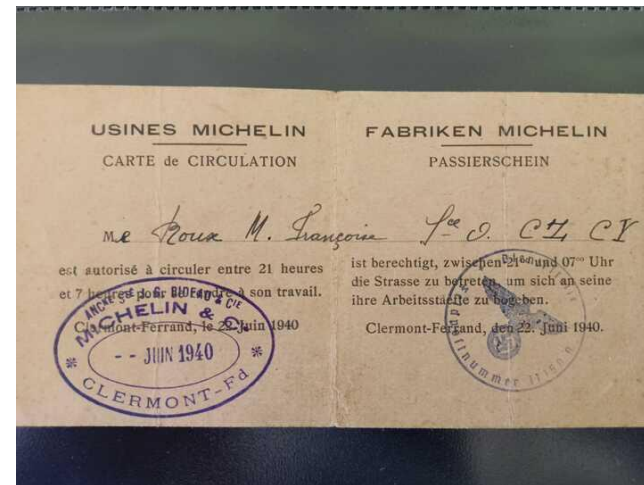 USINES MICHELIN
CARTE de CIRCULATION
Me Roux M. Françoise
est autorisé à circuler entre 21 heures
et 7 heures pour se rendre à son travail.
Clermont-Ferrand, le 22 Juin 1940
MICHELIN & Cie
- - JUIN 1940
CLERMONT-Fd
FABRIKEN MICHELIN
PASSIERSCHEIN
Sce O. CZ CY
ist berechtigt, zwischen 21°° und 07°° Uhr
die Strasse zu betreten, um sich an seine
ihre Arbeitsstaette zu begeben.
Clermont-Ferrand, den 22. Juni 1940.